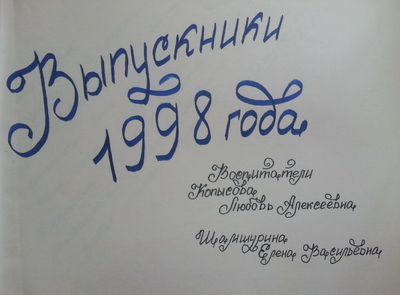 Выпускники
1998 года
Воспитатели
Копысова
Любовь Алексеевна
Шамшурина
Елена Васильевна